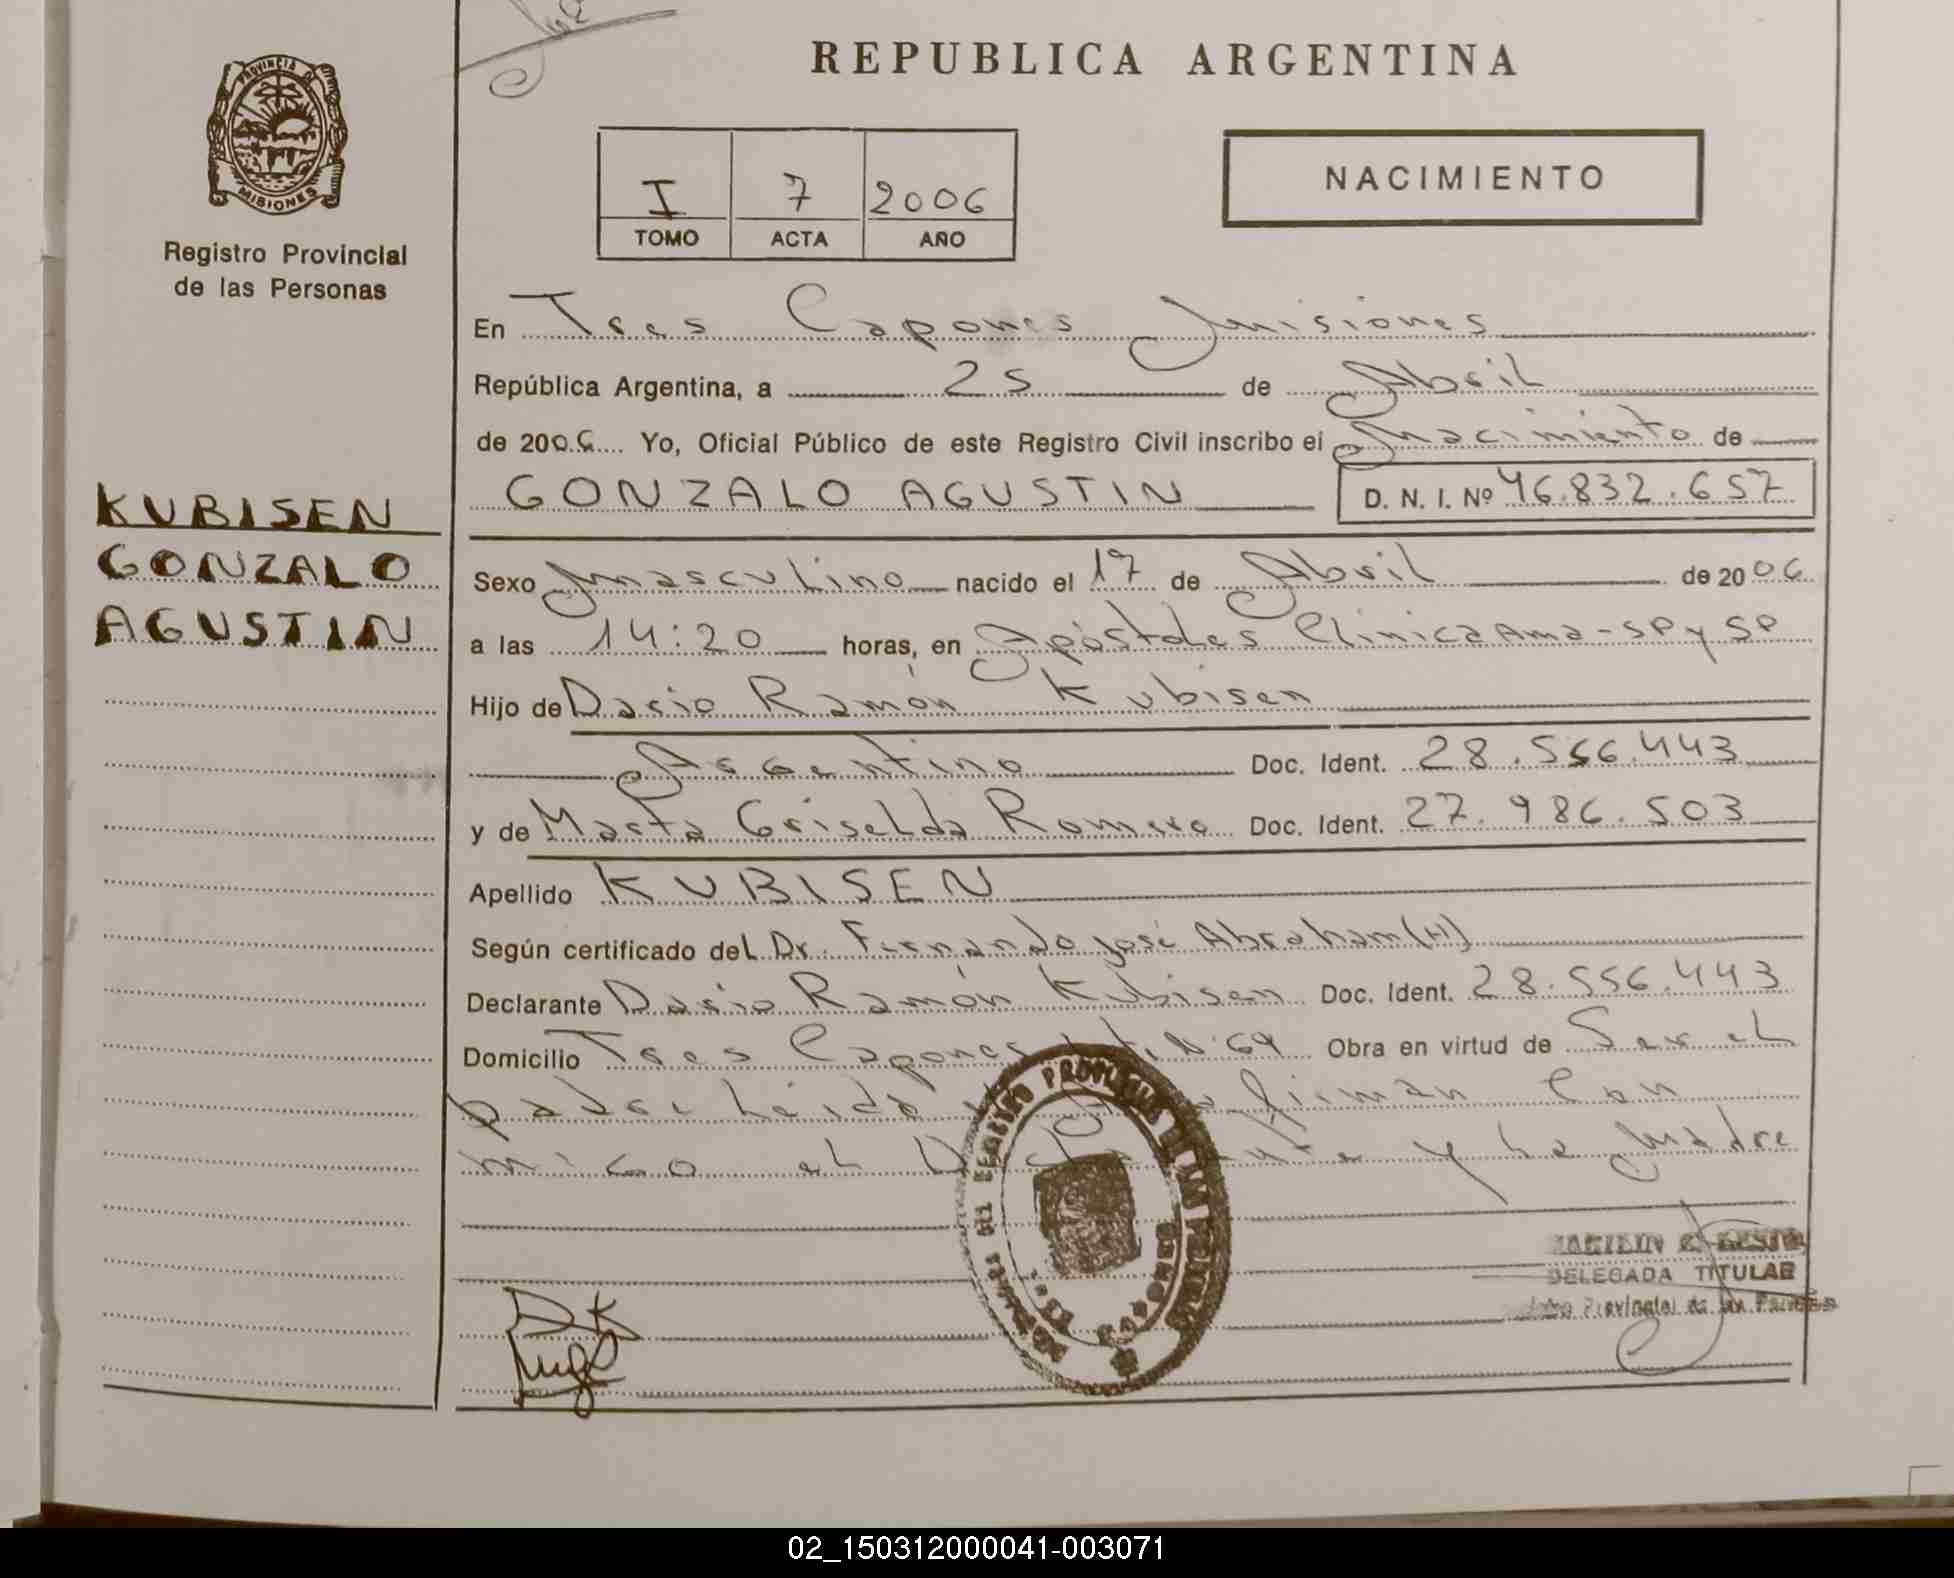 REPUBLICA ARGENTINA
PROVINCIA DE
MISIONES
Registro Provincial
de las Personas
I 7 2006
TOMO ACTA AÑO
NACIMIENTO
En Tres Capones Misiones
República Argentina, a 25 de Abril
de 2006 Yo, Oficial Público de este Registro Civil inscribo el Nacimiento de
GONZALO AGUSTIN D. N. I. Nº 46.832.657
KUBISEN
GONZALO
AGUSTIN
Sexo masculino nacido el 17 de Abril de 2006
a las 14:20 horas, en Apóstoles Clinica Ama-SP y SP
Hijo de Dario Ramón Kubisen
Argentino Doc. Ident. 28.556.443
y de Marta Griselda Romero Doc. Ident. 27.986.503
Apellido KUBISEN
Según certificado del Dr. Fernando José Abraham (H)
Declarante Dario Ramón Kubisen Doc. Ident. 28.556.443
Domicilio Tres Capones Nº 69 Obra en virtud de Ser el
padre Leida firman Con
migo el y La Madre
DELEGADA TITULAR
Provincial de las Personas
DK
02_150312000041-003071